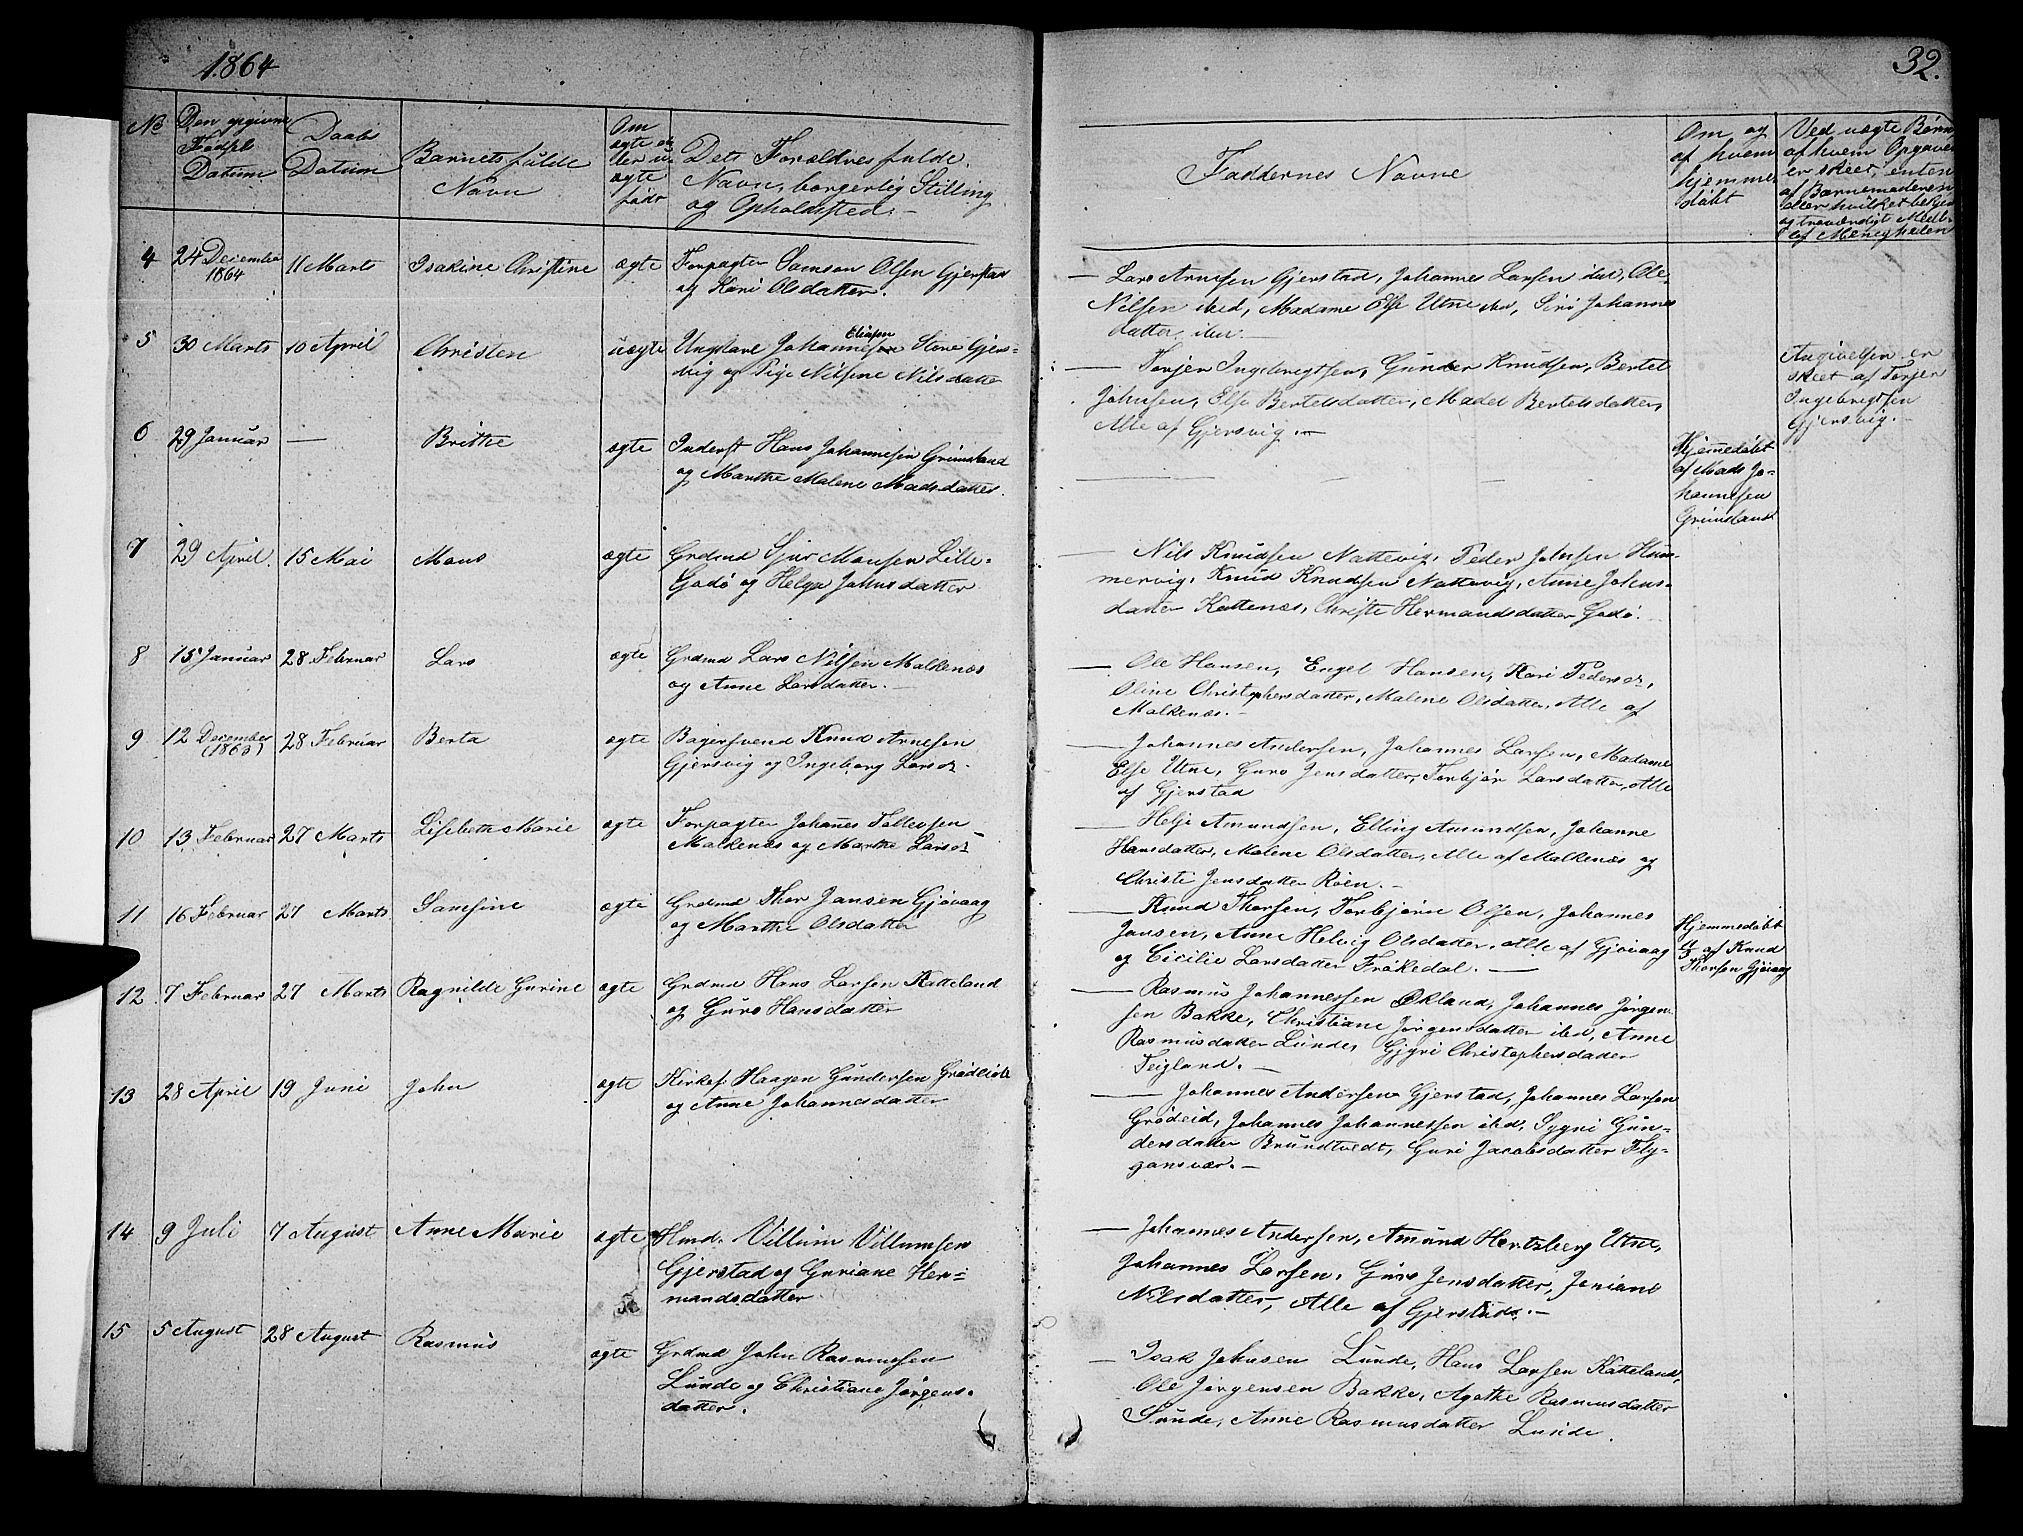 1864
32.
No
Den opgivne
Fødsels
Datum
Daabs
Datum
Barnets fulde
Navn
Om
ægte el-
ler u-
ægte
født
Dets Forældres fulde
Navn, borgerlig Stilling
og Opholdsted.-
Faddernes Navne
Om og
af hvem
hjemme-
døbt
Ved uægte Børn
af hvem Opgaven
er skeet, enten
af Barnemoderen
eller hvilket bekjendt
og troværdigt Medl.
af Menigheden
4
24 December
1864
11 Marts
Isakine Christine
ægte
Forpagter Samson Olsen Gjerstad
og Kari Olsdatter.
— Lars Arnesen Gjerstad, Johannes Larsen ibd, Ole
Nilsen ibid, Madame Else Utne ibd, Siri Johannes
datter ibd.
5
30 Marts
10 April
Christen
uægte
Ungkarl Johannes Eliasen Store Gjers-
vig og Pige Nilsine Nilsdatter
— Torjer Ingebrigtsen, Gunder Knudsen, Bertel
Johnsen, Else Bertelsdatter, Madel Bertelsdatter,
Alle af Gjersvig.—
Angivelsen er
skeet af Torjer
Ingebrigtsen
Gjersvig.-
6
29 Januar
—
Brithe
ægte
Inderst Hans Johannesen Grimsland
og Marthe Malene Madsdatter.
— — —
Hjemmedøbt
af Mads Jo-
hannesen
Grimsland
7
29 April.
15 Mai
Mons
ægte
Grdmd Sjur Monsen Lille-
Godø og Helga Johnsdatter
— Nils Knudsen Nattevig, Peder Johnsen Hum-
mervig, Knud Knudsen Nattevig, Anne Johns-
datter Kattenes, Christi Hermandsdatter Godø.
8
15 Januar
28 Februar
Lars
ægte
Grdmd Lars Nilsen Malkenæs
og Anne Larsdatter.-
— Ole Hansen, Engel Hansen, Kari Pedersdr,
Oline Christophersdatter, Malene Olsdatter, Alle af
Malkenæs.-
9
12 December
(1863)
28 Februar
Berta
ægte
Bagersvend Knud Arnesen
Gjersvig og Ingeborg Larsdr.
— Johannes Andersen, Johannes Larsen, Madame
Else Utne, Guro Jensdatter, Torbjør Larsdatter, Alle
af Gjerstad
10
13 Februar
27 Marts
Lisebeth Marie
ægte
Forpagter Johanes Tollevsen
Malkenæs og Marthe Larsdr
— Helje Amundsen, Elling Amundsen, Johanne
Hansdatter, Malene Olsdatter, Alle af Malkenæs og
Christi Jensdatter Røen.-
11
16 Februar
27 Marts
Samsine
ægte
Grdmd Thor Jansen Gjøvaag
og Marthe Olsdatter
— Knud Thorsen, Torbjørn Olsen, Johannes
Jansen, Anne Helvig Olsdatter, Alle af Gjøvaag
og Cicilie Larsdatter Frøkedal.—
Hjemmedøbt
af Knud
Thorsen Gjøvaag
12
7 Februar
27 Marts
Ragnilde Gurine
ægte
Grdmd Hans Larsen Katteland
og Guro Hansdatter
— Rasmus Johannessen Økland, Johannes Jørgen-
sen Bakke, Christiane Jørgensdatter ibid, Anne
Rasmusdatter Lunde, Gjyri Christophersdatter
Teigland.-
13
28 April
19 Juni
John
ægte
Kirkes. Haagen Gundersen Grødeid
og Anne Johannesdatter
— Johannes Andersen Gjerstad, Johannes Larsen
Grødeid, Johannes Johannessen ibd, Sygni Gun-
dersdatter Brundtvedt, Guri Jacobsdatter Fly-
gansvær.-
14
9 Juli
7 August
Anne Marie
ægte
Hmd. Villum Villumsen
Gjerstad og Guriane Her-
mandsdatter
— Johannes Andersen, Amund Hertzberg Utne,
Johannes Larsen, Guro Jensdatter, Jeniane
Nilsdatter, Alle af Gjerstad.-
15
5 August
28 August
Rasmus
ægte
Grdmd John Rasmussen
Lunde og Christiane Jørgens-
datter.
— Isak Johnsen Lunde, Hans Larsen Katteland,
Ole Jørgensen Bakke, Agathe Rasmusdatter
Sunde, Anne Rasmusdatter Lunde.